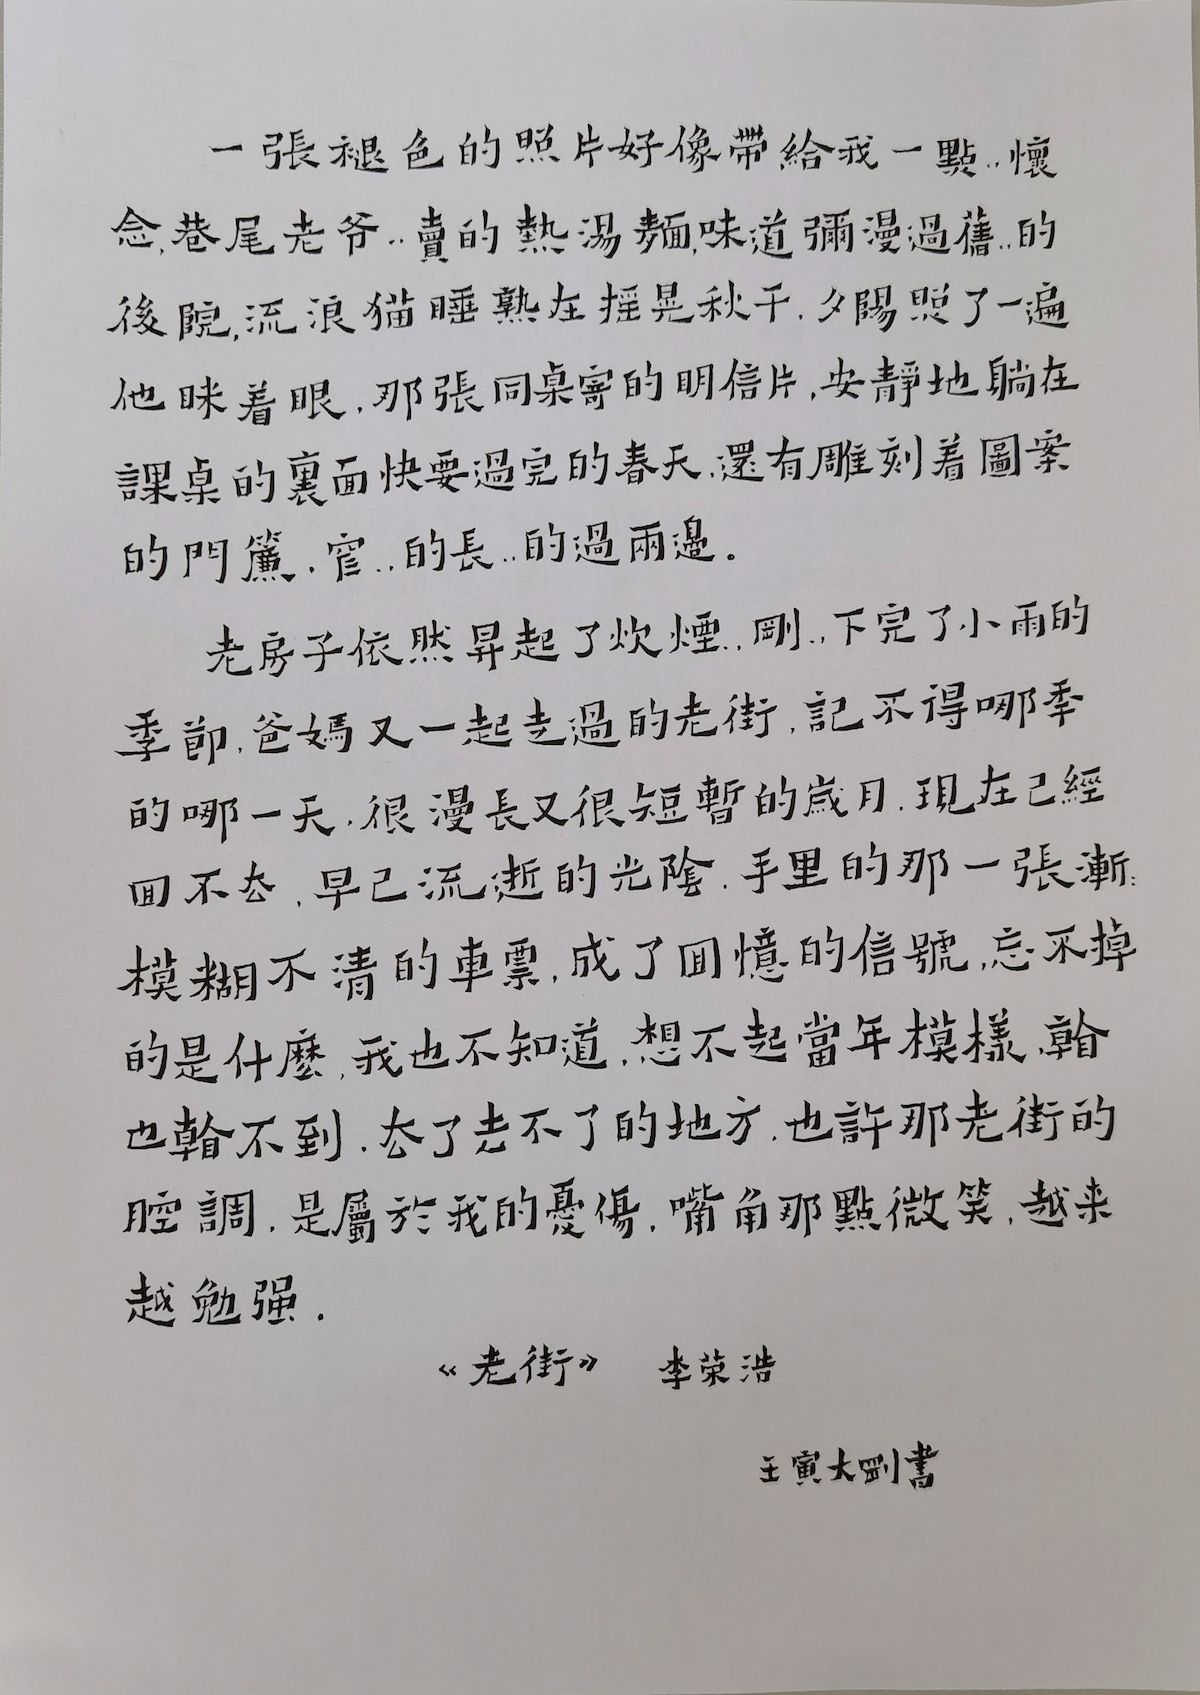 一張褪色的照片好像帶給我一點..懷
念,巷尾老爷..賣的熱湯麵,味道彌漫過舊..的
後院,流浪猫睡熟在摇晃秋千.夕陽照了一遍
他眯着眼.那張同桌寄的明信片,安靜地躺在
課桌的裏面快要過完的春天.還有雕刻着圖案
的門簾.窄..的長..的過兩邊.
老房子依然昇起了炊煙..剛..下完了小雨的
季節.爸媽又一起走過的老街.記不得哪年
的哪一天.很漫長又很短暫的歲月.現在已經
回不去.早已流逝的光陰.手里的那一張漸:
模糊不清的車票.成了回憶的信號,忘不掉
的是什麼.我也不知道.想不起當年模樣.看
也看不到.去了走不了的地方.也許那老街的
腔調.是屬於我的憂傷.嘴角那點微笑.越来
越勉强.
《老街》 李荣浩
壬寅大剛書